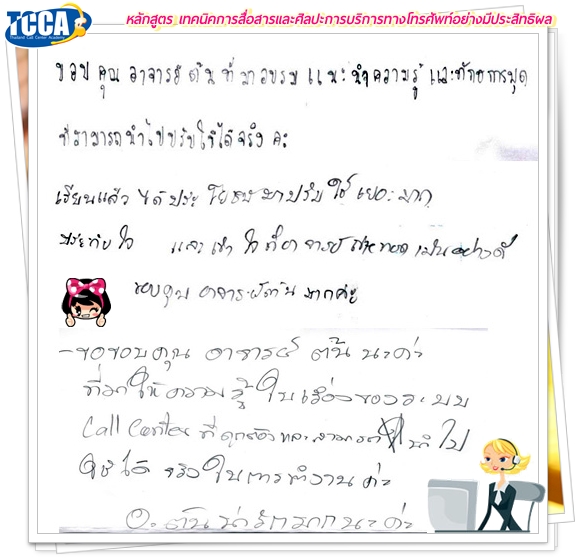 TCCA
Thailand Call Center Academy
หลักสูตร เทคนิคการสื่อสารและศิลปะการบริการทางโทรศัพท์อย่างมีประสิทธิผล
ขอบคุณ อาจารย์ต้นที่มาอบรม แนะนำความรู้ และทักษะการพูด
ที่สามารถนำไปปรับใช้ได้จริง คะ
เรียนแล้ว ได้ประโยชน์มาปรับใช้ เยอะมาก
ประทับใจ และเข้าใจที่อาจารย์ถ่ายทอดเป็นอย่างดี
ขอบคุณ อาจารย์ต้น มากค่ะ
- ขอขอบคุณ อาจารย์ ต้น นะค่ะ
ที่มาให้ความรู้ในเรื่องของระบบ
Call Center ที่ถูกต้องและสามารถนำไป
ใช้ได้จริงในการทำงานค่ะ
อ. ต้นน่ารักมากนะค่ะ